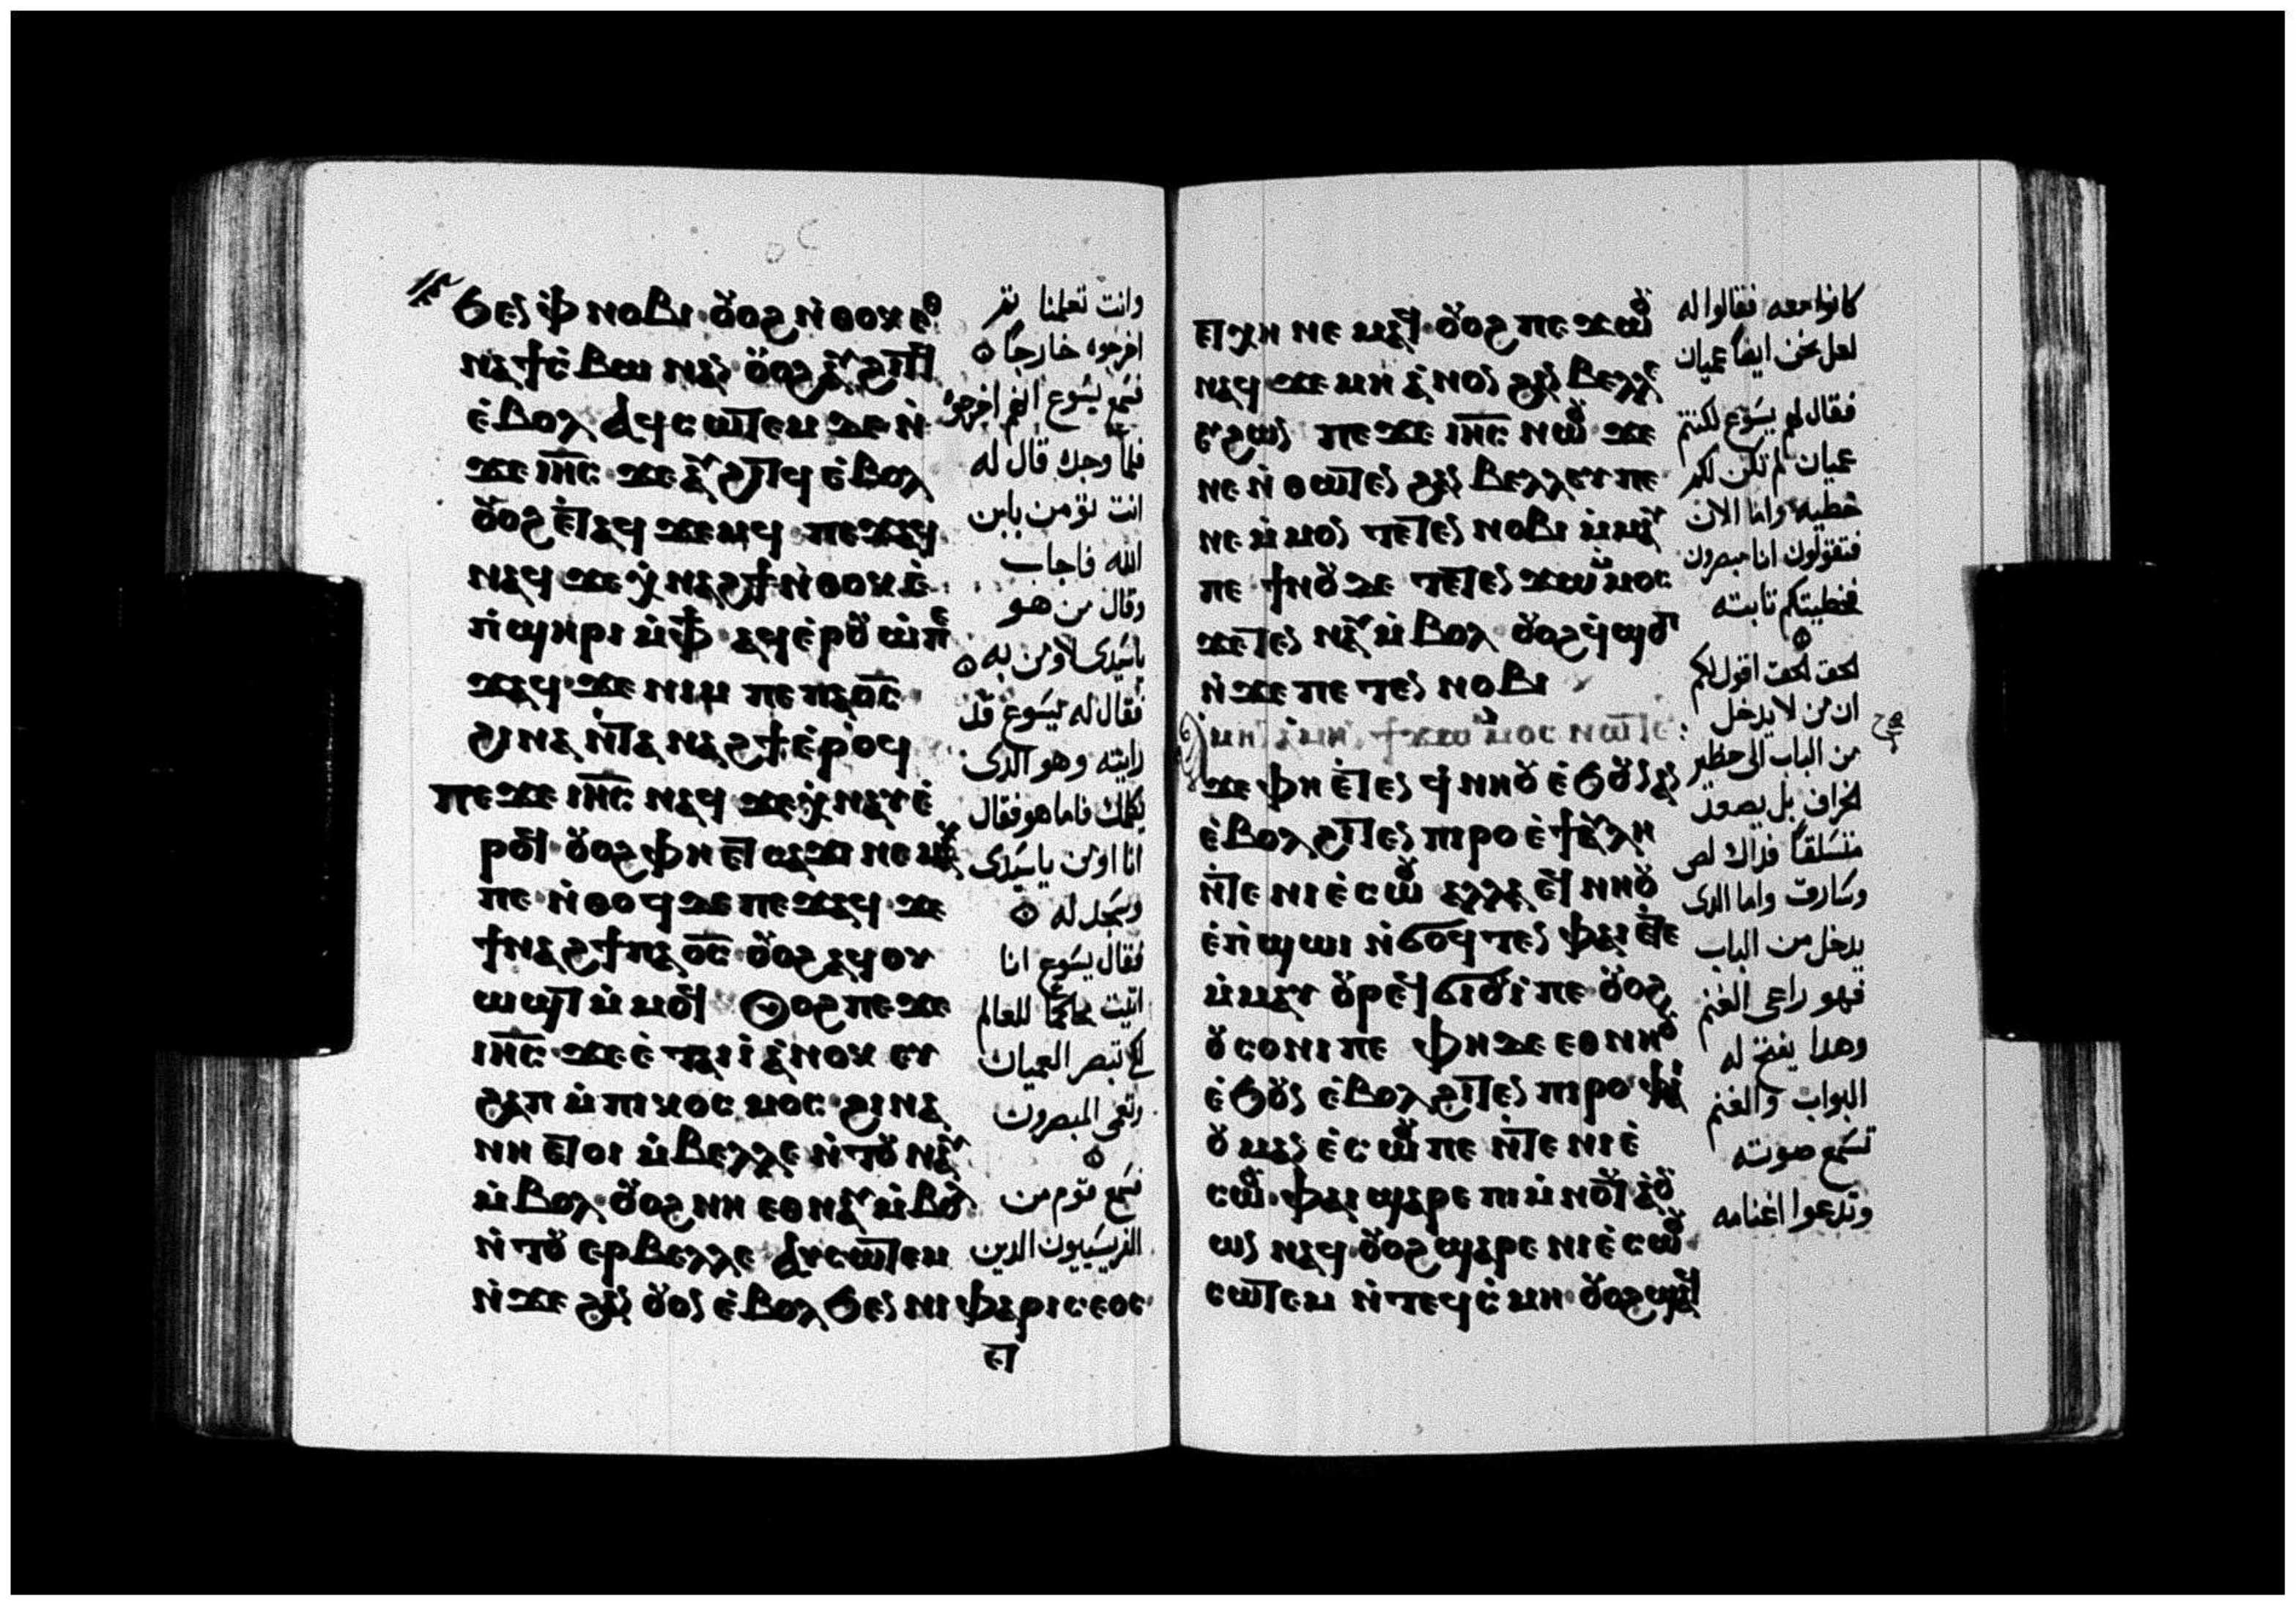 ϧⲉⲛ ⲫ̇ⲛⲟⲃⲓ ⲟⲩⲟϩ ⲛ̇ⲑⲟⲕ ⲉⲑ
ⲛⲁϯⲥ̇ⲃⲱ ⲛⲁⲛ ⲟⲩⲟϩ ⲁⲩϩⲓⲧϥ
ⲉ̇ⲃⲟⲗ ⲁϥⲥⲱⲧⲉⲙ ⲇⲉ ⲛ̇
ϫⲉ ⲓⲏ̅ⲥ̅ ϫⲉ ⲁⲩϩⲓⲧϥ ⲉ̇ⲃⲟⲗ
ⲟⲩⲟϩ ⲉ̇ⲧⲁϥϫⲉⲙϥ ⲡⲉϫⲁϥ
ⲛⲁϥ ϫⲉ ⲭ̇ⲛⲁϩϯ ⲛ̇ⲑⲟⲕ ⲉ̇
ⲡ̇ϣⲏⲣⲓ ⲙ̇ⲫϯ̅ ⲁϥⲉ̇ⲣⲟⲩⲱ̇ ⲡⲉ
ϫⲁϥ ϫⲉ ⲛⲓⲙ ⲡⲉ ⲡⲁⲟ̅ⲥ̅
ϩⲓⲛⲁ ⲛ̇ⲧⲁⲛⲁϩϯ ⲉ̇ⲣⲟϥ
ⲡⲉϫⲉ ⲓⲏ̅ⲥ̅ ⲛⲁϥ ϫⲉ ⲭ̇ⲛⲁⲩ ⲉ̇
ⲣⲟϥ ⲟⲩⲟϩ ⲫⲏ ⲉⲧⲥⲁϫⲓ ⲛⲉⲙⲁⲕ
ⲡⲉ ⲛ̇ⲑⲟϥ ⲇⲉ ⲡⲉϫⲁϥ ϫⲉ
ϯⲛⲁϩϯ ⲡⲁⲟ̅ⲥ̅ ⲟⲩⲟϩ ⲁϥⲟⲩ
ⲱϣⲧ ⲙ̇ⲙⲟϥ ⲟⲩⲟϩ ⲡⲉϫⲉ
ⲓⲏ̅ⲥ̅ ϫⲉ ⲉ̇ⲧⲁⲓⲓ̇ ⲁ̇ⲛⲟⲕ ⲉⲩ
ϩⲁⲡ ⲙ̇ⲡⲓⲕⲟⲥⲙⲟⲥ ϩⲓⲛⲁ
ⲛⲏ ⲉⲧⲟⲓ ⲙ̇ⲃⲉⲗⲗⲉ ⲛ̇ⲧⲟⲩⲛⲁⲩ
ⲙ̇ⲃⲟⲗ ⲟⲩⲟϩ ⲛⲏ ⲉⲑⲛⲁⲩ ⲙ̇ⲃⲟⲗ
ⲛ̇ⲧⲟⲩⲉⲣⲃⲉⲗⲗⲉ ⲁⲩⲥⲱⲧⲉⲙ
ⲛ̇ϫⲉ ϩⲁⲛ ⲟⲩⲟⲛ ⲉ̇ⲃⲟⲗϧⲉⲛ ⲛⲓⲫⲁⲣⲓⲥⲉⲟⲥ
ⲉⲧ
وانت تعلمنا ثم
اخرجوه خارجاً
فسمع يسوع انهم اخرجوه
فلما وجده قال له
انت تؤمن بابن
الله فاجاب
وقال من هو
ياسيدى لاومن به
فقال له يسوع قد
رايته وهو الذى
يكلمك فاما هو فقال
انا اومن ياسيدى
وسجد له
فقال يسوع انا
اتيت محاكمًا للعالم
لكى تبصر العميان
وتعمى المبصرون
فسمع قوم من
الفريسيون الدين
ⲉⲧⲭⲏ ⲛⲉⲙⲁϥ ⲟⲩⲟϩ ⲡⲉϫⲱⲟⲩ
ⲛⲁϥ ϫⲉ ⲙⲏ ⲁ̇ⲛⲟⲛ ϩⲁⲛⲃⲉⲗⲗⲉ
ⲉⲩϩⲱⲛ ⲡⲉϫⲉ ⲓⲏ̅ⲥ̅ ⲛⲱⲟⲩ ϫⲉ
ⲛⲉ ⲛ̇ⲑⲱⲧⲉⲛ ϩⲁⲛⲃⲉⲗⲗⲉⲩ ⲡⲉ
ⲛⲉ ⲙ̇ⲙⲟⲛ ⲧⲉⲧⲉⲛ ⲛⲟⲃⲓ ⲙ̇ⲙⲁⲩ
ⲡⲉ ϯⲛⲟⲩ ⲇⲉ ⲧⲉⲧⲉⲛϫⲱⲙ̇ⲙⲟⲥ
ϫⲉⲧⲉⲛⲛⲁⲩ ⲙ̇ⲃⲟⲗ ⲟⲩⲟϩ ϥ̇ϣⲟⲡ
ⲛ̇ϫⲉ ⲡⲉⲧⲉⲛ ⲛⲟⲃⲓ
ⲁ̇ⲙⲏⲛ ⲁ̇ⲙⲏⲛ ϯϫⲱ ⲙ̇ⲙⲟⲥ ⲛⲱⲧⲉⲛ
ϫⲉ ⲫⲏ ⲉ̇ⲧⲉⲛ ϥ̇ⲛⲏⲟⲩ ⲉ̇ϧⲟⲩⲛ ⲁⲛ
ⲉ̇ⲃⲟⲗ ϩⲓⲧⲉⲛ ⲡⲓⲣⲟ ⲉ̇ϯⲁⲩⲗⲏ
ⲛ̇ⲧⲉ ⲛⲓⲉ̇ⲥⲱⲟⲩ ⲁⲗⲗⲁ ⲉϥⲛⲏⲟⲩ
ⲉ̇ⲡ̇ϣⲱⲓ ⲛ̇ϭⲟϥⲧⲉⲛ ⲫⲁⲓ ⲉ̇ⲧⲉ
ⲙ̇ⲙⲁⲩ ⲟⲩⲣⲉϥϭⲓⲟⲩⲓ̇ ⲡⲉ ⲟⲩⲟϩ
ⲟⲩⲥⲟⲛⲓ ⲡⲉ ⲫⲏ ⲇⲉ ⲉⲑⲛⲏⲟⲩ
ⲉ̇ϧⲟⲩⲛ ⲉ̇ⲃⲟⲗ ϩⲓⲧⲉⲛ ⲡⲓⲣⲟ ⲫⲁⲓ
ⲟⲩⲙⲁⲛⲉ̇ⲥⲱⲟⲩ ⲡⲉ ⲛ̇ⲧⲉ ⲛⲓⲉ̇
ⲥⲱⲟⲩ ⲫⲁⲓ ϣⲁⲣⲉ ⲡⲓⲙ̇ⲛⲟⲩϯ ⲁ̇ⲟⲩ
ⲱⲛ ⲛⲁϥ ⲟⲩⲟϩ ϣⲁⲣⲉ ⲛⲓⲉ̇ⲥⲱⲟⲩ
ⲥⲱⲧⲉⲙ ⲛ̇ⲧⲉϥⲥ̇ⲙⲏ ⲟⲩⲟϩ ϣⲁϥ
كانوا معه فقالوا له
لعل نحن ايضاً عميان
فقال لهم يسوع لو كنتم
عميان لم تكن لكم
خطيه واما الان
فتقولون اننا مبصرون
فخطيتكم ثابته
الحق الحق اقول لكم
ان من لا يدخل
من الباب الى حظير
الخراف بل يصعد
متسلقاً فذاك لص
وسارق واما الذى
يدخل من الباب
فهو راعى الغنم
وهدا يفتح له
البواب والغنم
تسمع صوته
وتدعوا اغنامه